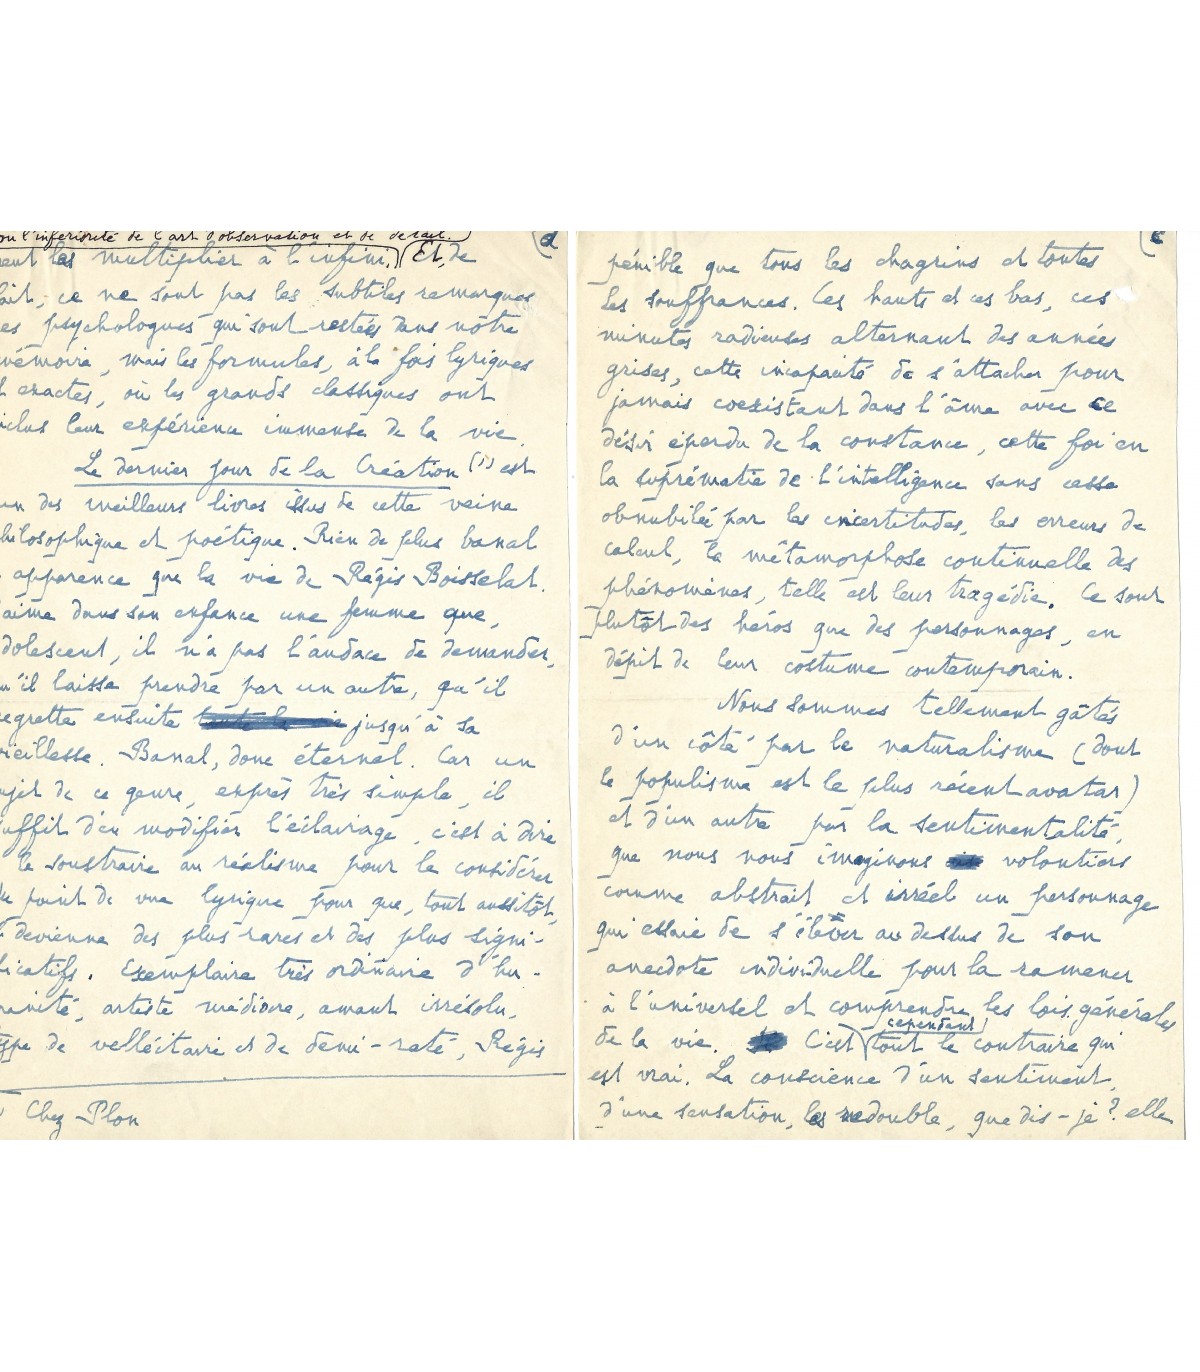 ou l'infériorité de l'art d'observation et de détail.
les multiplier à l'infini. Et, de
ait, ce ne sont pas les subtiles remarques
es psychologues qui sont restées dans notre
mémoire, mais les formules, à la fois lyriques
t exactes, où les grands classiques ont
clus leur expérience immense de la vie.
Le dernier jour de la Création (1) est
un des meilleurs livres issus de cette veine
hilosophique et poétique. Rien de plus banal
apparence que la vie de Régis Boisselat.
aime dans son enfance une femme que,
dolescent, il n'a pas l'audace de demander,
u'il laisse prendre par un autre, qu'il
regrette ensuite jusqu'à sa
vieillesse. Banal, donc éternel. Car un
ujet de ce genre, exprès très simple, il
uffit d'en modifier l'éclairage, c'est à dire
le soustraire au réalisme pour le considérer
du point de vue lyrique pour que, tout aussitôt,
l devienne des plus rares et des plus signi-
ficatifs. Exemplaire très ordinaire d'hu-
manité, artiste médiocre, amant irrésolu,
type de velléitaire et de demi-raté, Régis
Chez Plon
pénible que tous les chagrins et toutes
les souffrances. Ces hauts et ces bas, ces
minutes radieuses alternant des années
grises, cette incapacité de s'attacher pour
jamais coexistant dans l'âme avec ce
désir éperdu de la constance, cette foi en
la suprématie de l'intelligence sans cesse
obnubilée par les incertitudes, les erreurs de
calcul, la métamorphose continuelle des
phénomènes, telle est leur tragédie. Ce sont
plutôt des héros que des personnages, en
dépit de leur costume contemporain.
Nous sommes tellement gâtés
d'un côté par le naturalisme (dont
le populisme est le plus récent avatar)
et d'un autre par la sentimentalité,
que nous nous imaginons volontiers
comme abstrait et irréel un personnage
qui essaie de s'élever au dessus de son
anecdote individuelle pour la ramener
à l'universel et comprendre les lois générales
de la vie. C'est cependant tout le contraire qui
est vrai. La conscience d'un sentiment,
d'une sensation, les redouble, que dis-je? elle